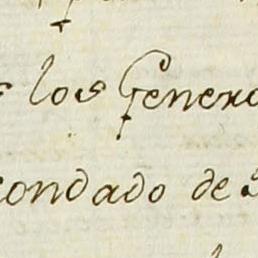 los Genero
condado de